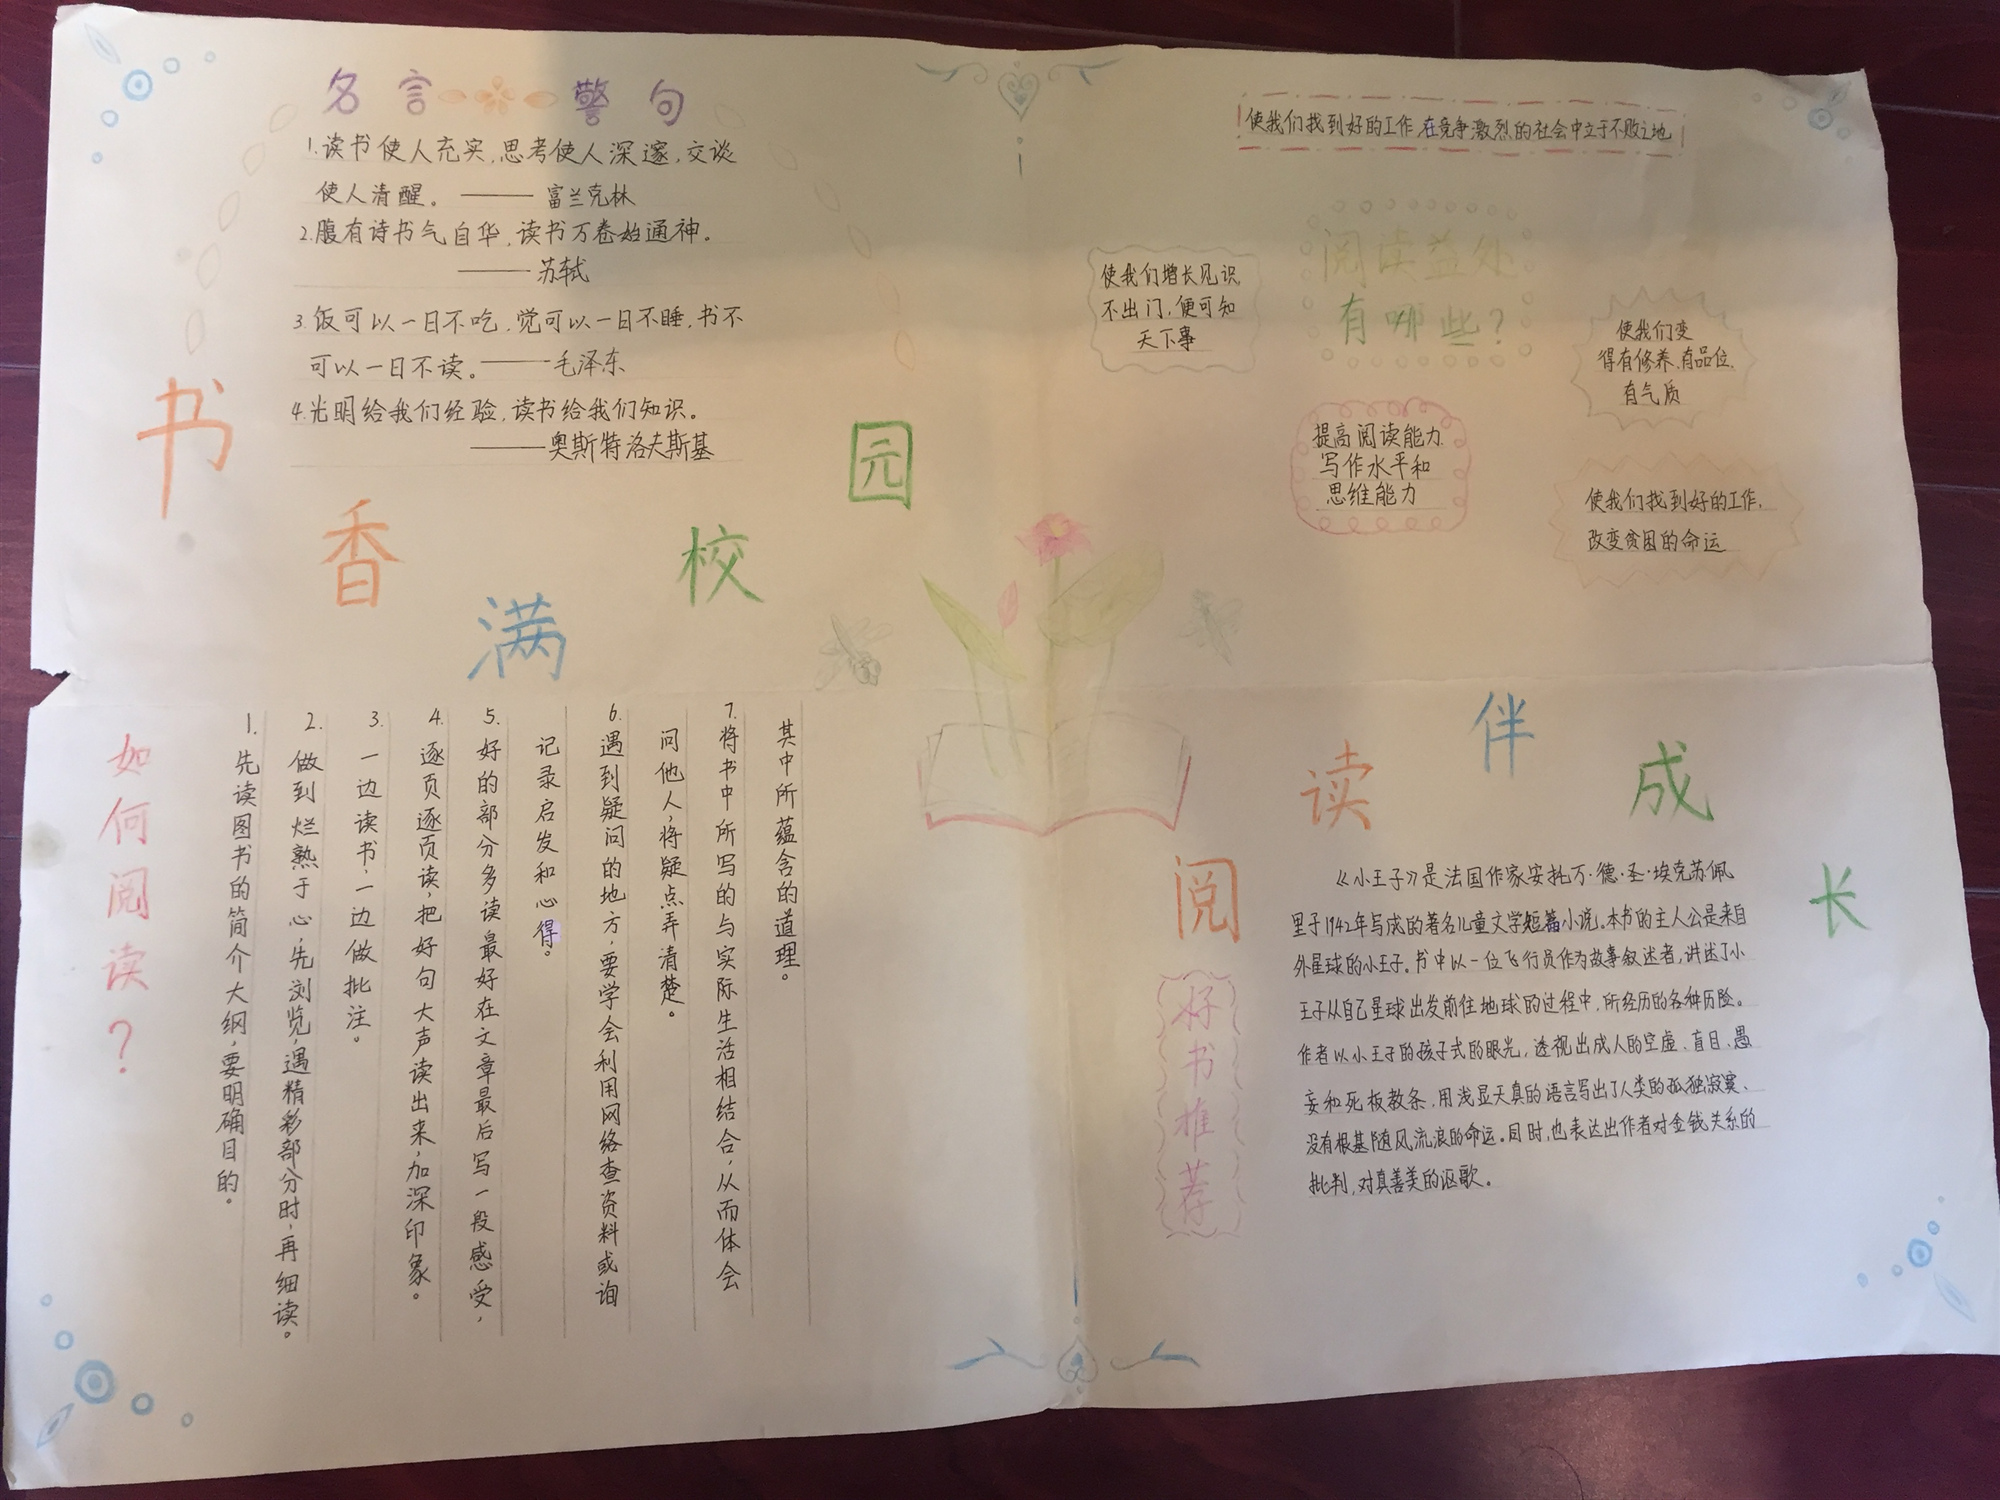 名言 警句
1.读书使人充实,思考使人深邃,交谈
使人清醒。——富兰克林
2.腹有诗书气自华,读书万卷始通神。
——苏轼
3.饭可以一日不吃,觉可以一日不睡,书不
可以一日不读。——毛泽东
4.光明给我们经验,读书给我们知识。
——奥斯特洛夫斯基
书香满校园
使我们找到好的工作,在竞争激烈的社会中立于不败之地
阅读益处
有哪些?
使我们增长见识,
不出门,便可知
天下事
使我们变
得有修养,有品位,
有气质
提高阅读能力,
写作水平和
思维能力
使我们找到好的工作,
改变贫困的命运
如何阅读?
1.先读图书的简介大纲,要明确目的。
2.做到烂熟于心,先浏览,遇精彩部分时,再细读。
3.一边读书,一边做批注。
4.逐页逐页读,把好句大声读出来,加深印象。
5.好的部分多读最好在文章最后写一段感受,
记录启发和心得。
6.遇到疑问的地方,要学会利用网络查资料或询
问他人,将疑点弄清楚。
7.将书中所写的与实际生活相结合,从而体会
其中所蕴含的道理。
阅读伴成长
好书推荐
《小王子》是法国作家安托万·德·圣·埃克苏佩
里于1942年写成的著名儿童文学短篇小说。本书的主人公是来自
外星球的小王子。书中以一位飞行员作为故事叙述者,讲述了小
王子从自己星球出发前往地球的过程中,所经历的各种历险。
作者以小王子的孩子式的眼光,透视出成人的空虚、盲目、愚
妄和死板教条,用浅显天真的语言写出了人类的孤独寂寞、
没有根基随风流浪的命运。同时,也表达出作者对金钱关系的
批判,对真善美的讴歌。